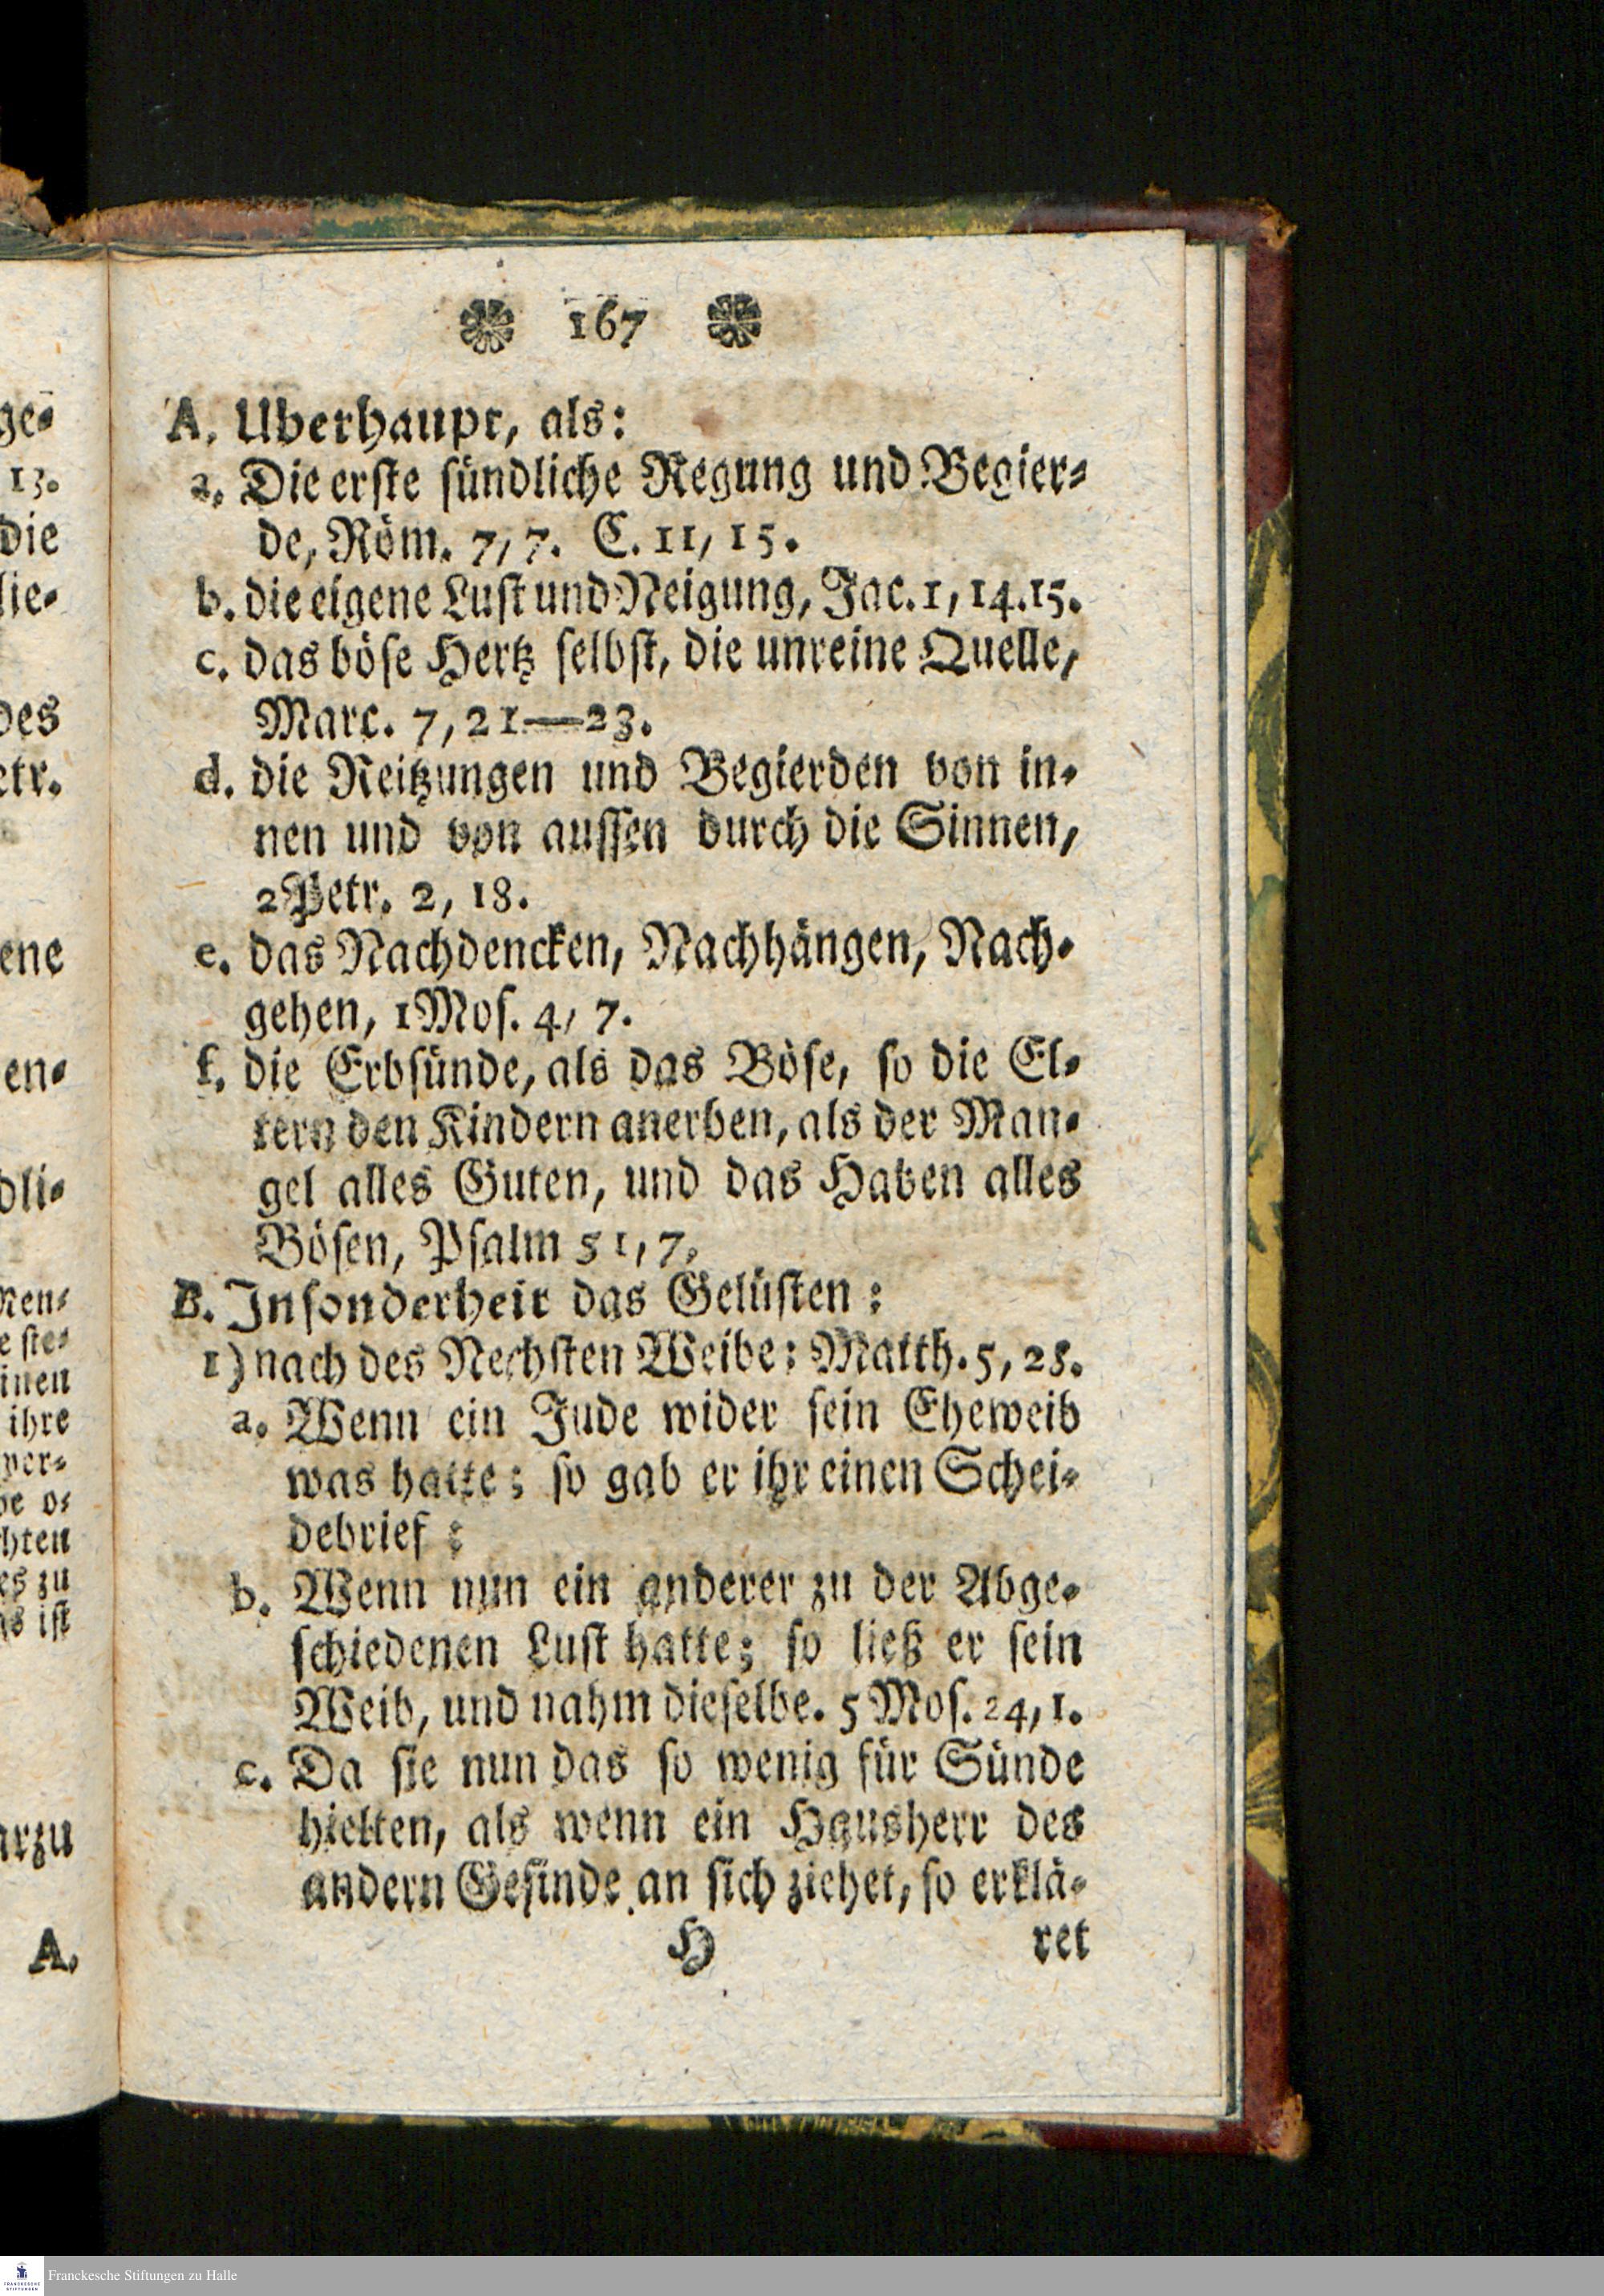 ge-
13.
die
lie-
des
etr.
ene
en-
dli-
Men-
e ste-
inen
ihre
ver-
be o-
hten
es zu
as ist
arzu
A.
167
A. Uberhaupt, als:
a. Die erste sündliche Regung und Begier-
de, Röm. 7, 7. C. 11, 15.
b. die eigene Lust und Neigung, Jac. 1, 14. 15.
c. das böse Hertz selbst, die unreine Quelle,
Marc. 7, 21—23.
d. die Reitzungen und Begierden von in-
nen und von aussen durch die Sinnen,
2 Petr. 2, 18.
e. das Nachdencken, Nachhängen, Nach-
gehen, 1 Mos. 4, 7.
f. die Erbsünde, als das Böse, so die El-
tern den Kindern anerben, als der Man-
gel alles Guten, und das Haben alles
Bösen, Psalm 51, 7.
B. Insonderheit das Gelüsten:
1) nach des Nechsten Weibe: Matth. 5, 28.
a. Wenn ein Jude wider sein Eheweib
was hatte; so gab er ihr einen Schei-
debrief;
b. Wenn nun ein anderer zu der Abge-
schiedenen Lust hatte; so ließ er sein
Weib, und nahm dieselbe. 5 Mos. 24, 1.
c. Da sie nun das so wenig für Sünde
hielten, als wenn ein Hausherr des
andern Gesinde an sich ziehet, so erklä-
H ret
FRANCKESCHE STIFTUNGEN
Franckesche Stiftungen zu Halle